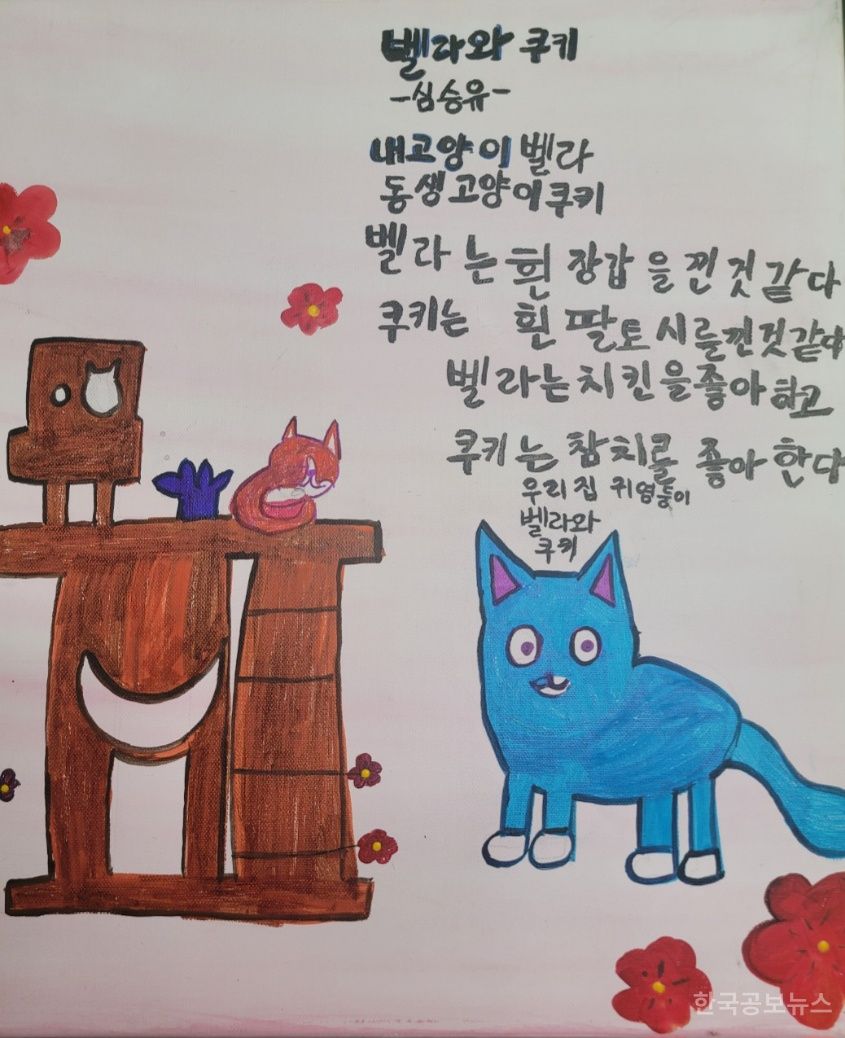 벨라와 쿠키
-심승유-
내고양이 벨라
동생고양이쿠키
벨라는 흰 장갑을 낀것같다
쿠키는 흰 팔토시를낀것같다
벨라는치킨을좋아하고
쿠키는 참치를 좋아한다
우리집 귀염둥이
벨라와
쿠키
한국공보뉴스